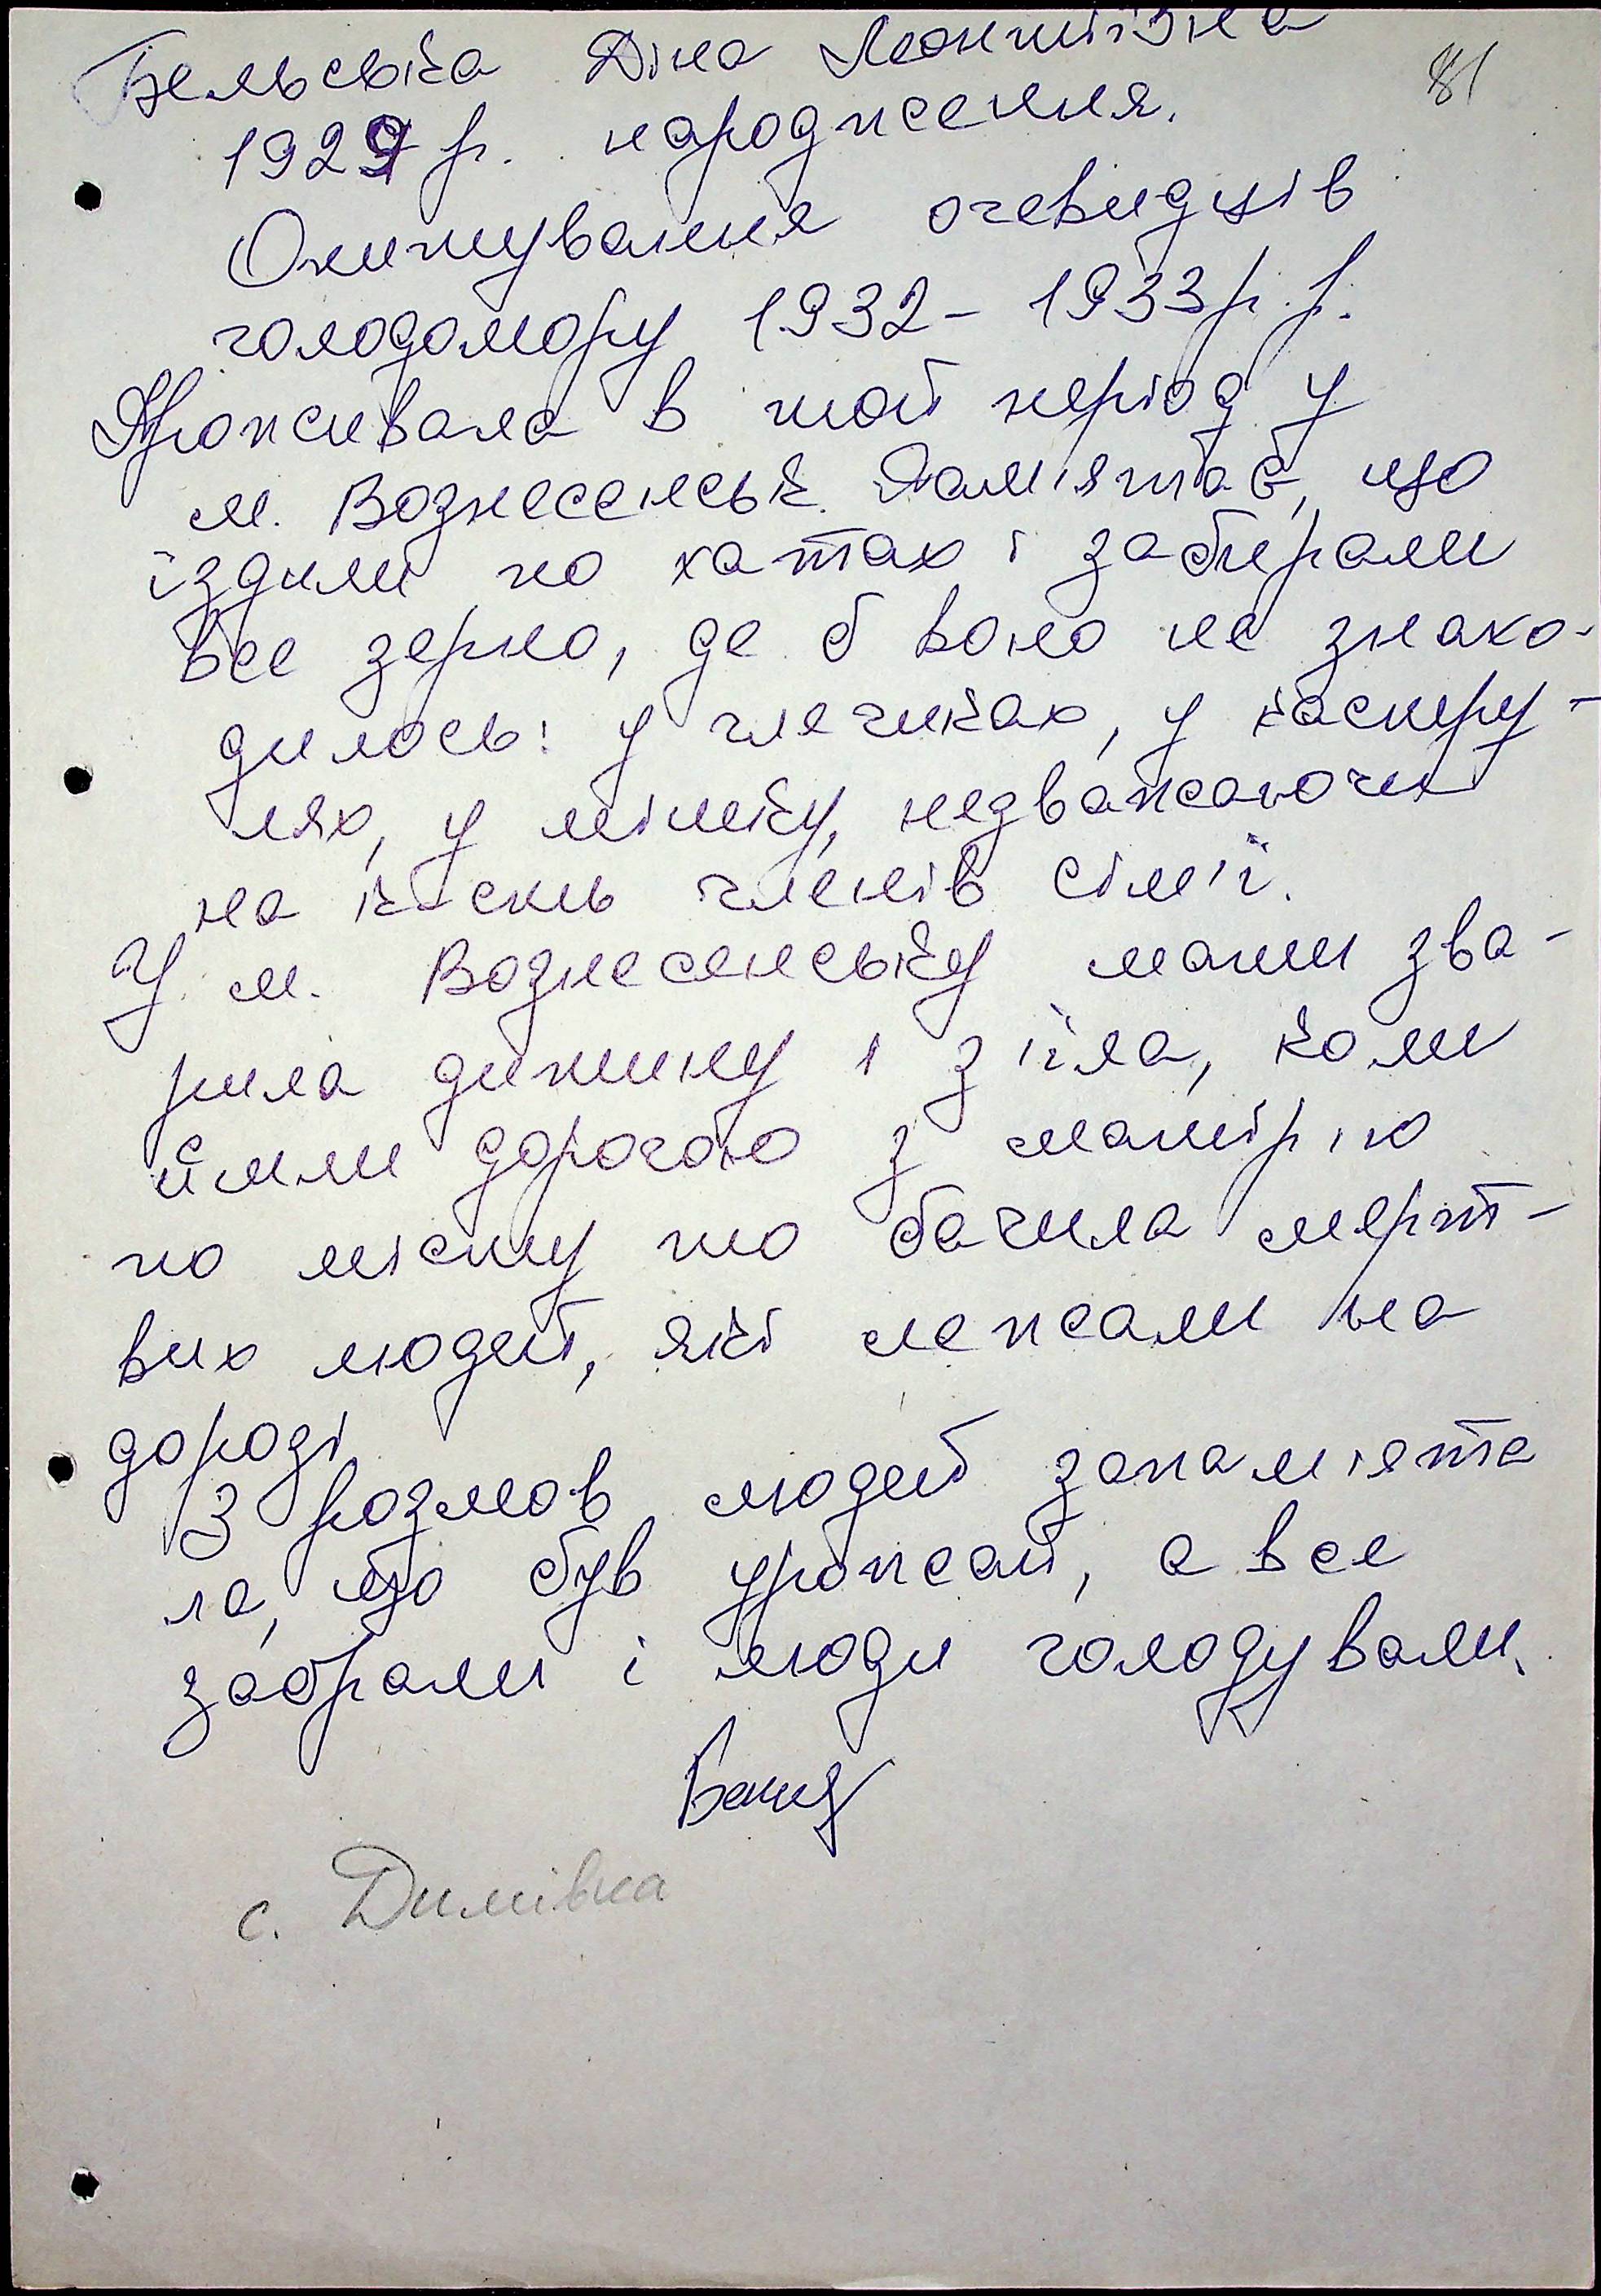 Бельська Діна Леонтіївна
81
1929 р. народження.
Опитування очевидців
голодомору 1932-1933 р.р.
Проживала в той період у
м. Вознесенськ. Пам'ятає, що
їздили по хатах і забирали
все зерно, де б воно не знахо-
дилось: у глечиках, у каструу-
лях, у мішку, недзважаючи
на кі-сть членів сім'ї.
У м. Вознесенську мати зва-
рила дитину і з'їла, коли
йшли дорогою з матір'ю
по місту то бачила мерт-
вих людей, які лежали на
дорозі
З розмов людей запам'ята
ла, що був урожай, а все
забрали і люди голодували.
с. Димівка